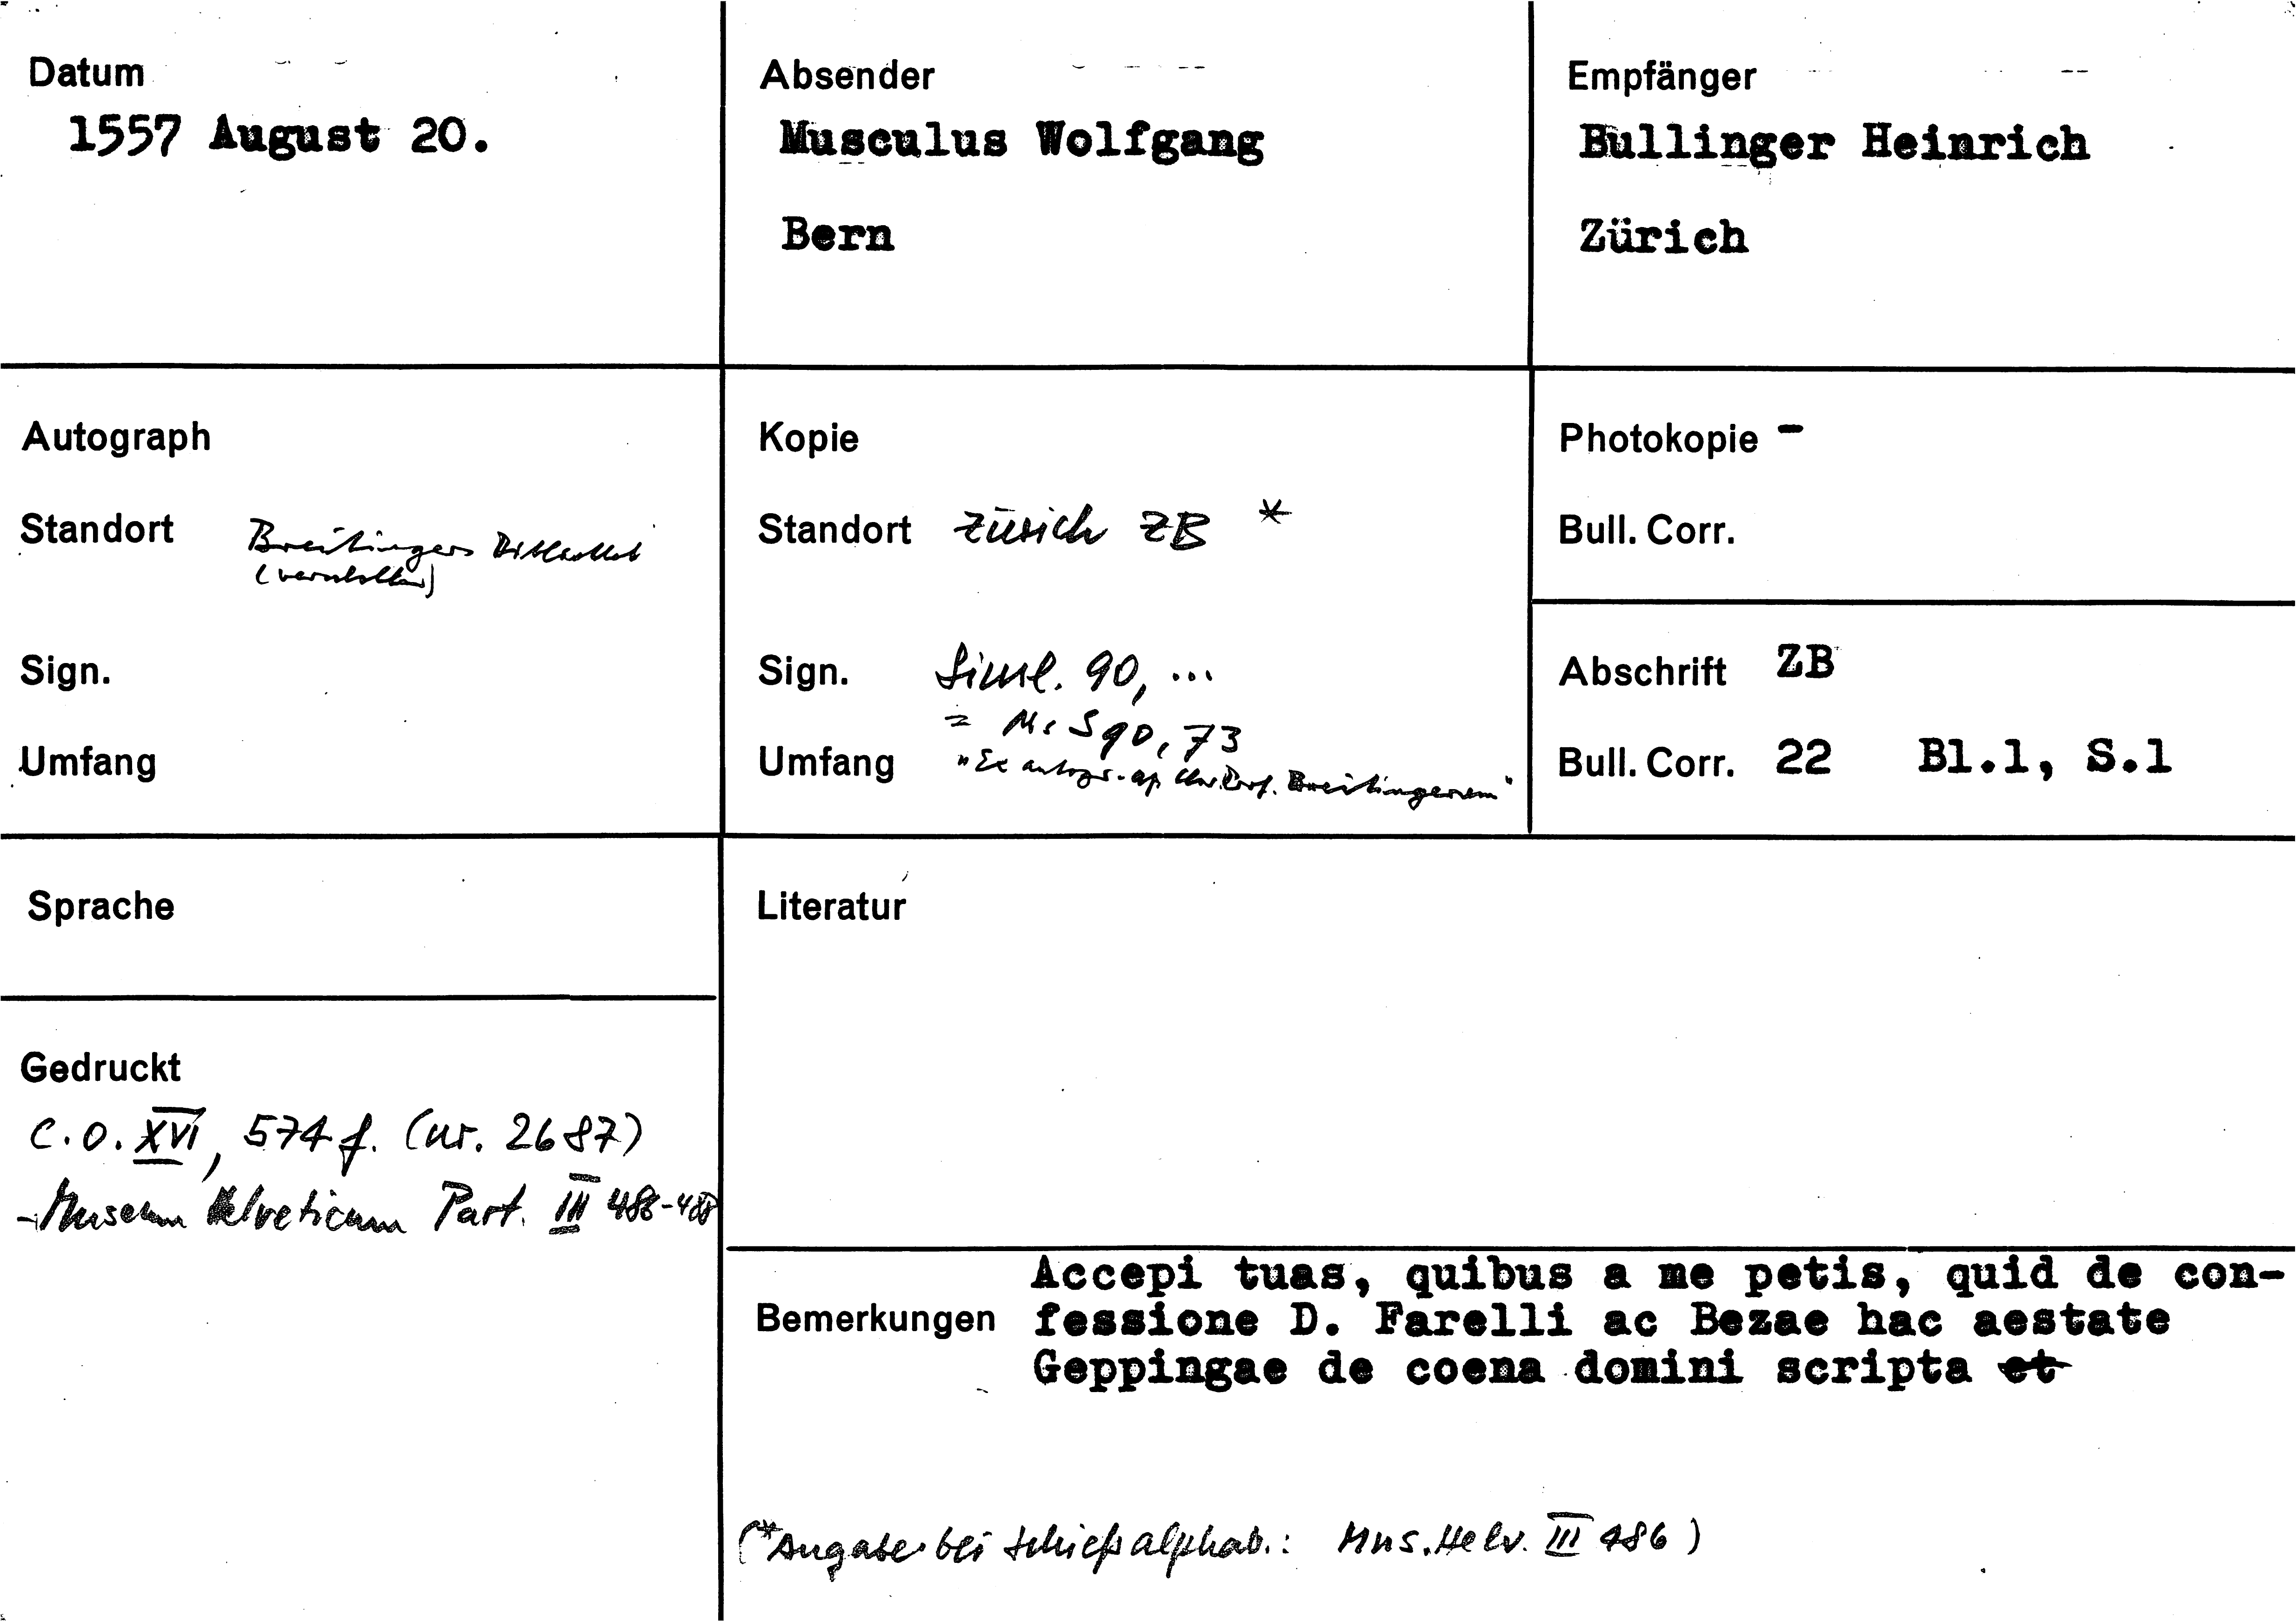 Datum
1557 August 20.
Absender
Musculus Wolfgang
Bern
Empfänger
Bullinger Heinrich
Zürich
Autograph
Standort Breitingers
Sign.
Umfang
Kopie
Standort Zürich ZB *
Sign. Siml. 90, ...
= Ms S 90, 73
Umfang "Ex autogr. ap. Breitingerum"
Photokopie -
Bull. Corr.
Abschrift ZB
Bull. Corr. 22 Bl.1, S.1
Sprache
Literatur
Gedruckt
C.O. XVI, 574 f. (nr. 2687)
- Museum Helveticum Part. III 486-488
Bemerkungen
Accepi tuas, quibus a me petis, quid de con-
fessione D. Farelli ac Bezae hac aestate
Geppingae de coena domini scripta et
(*Angabe bei Schieß alphab.: Mus. Helv. III 486)